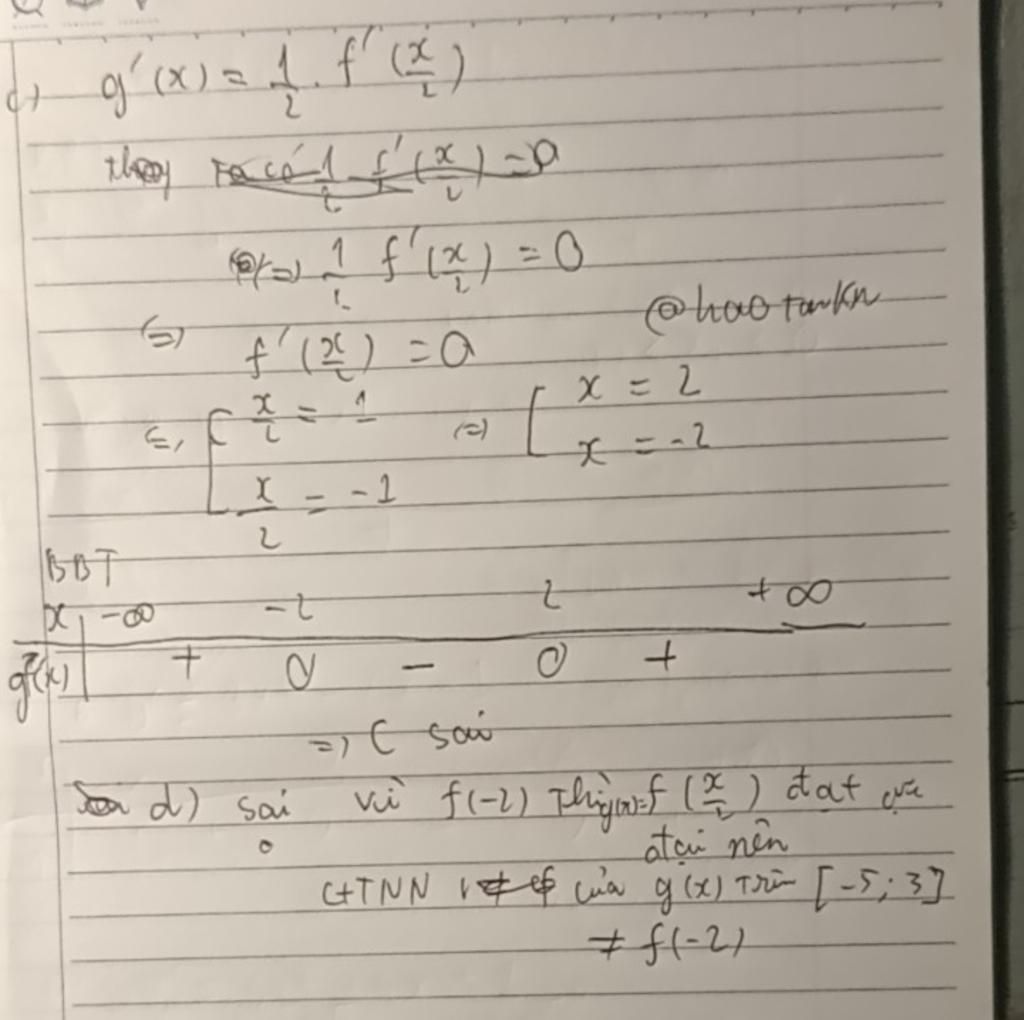 c) g'(x) = 1/2 . f'(x/2)
Thay Ta có 1/2 f'(x/2) = 0
(=) 1/2 f'(x/2) = 0
@haotankn
(=) f'(x/2) = 0
(=) [ x/2 = 1 (=) [ x = 2
x/2 = -1 x = -2
BBT
x -∞ -2 2 + ∞
g'(x) + 0 - 0 +
=) C sai
d) sai vì f(-2) Thì g(x)=f(x/2) đạt cực
đại nên
GTNN của g(x) Trên [-5; 3]
≠ f(-2)